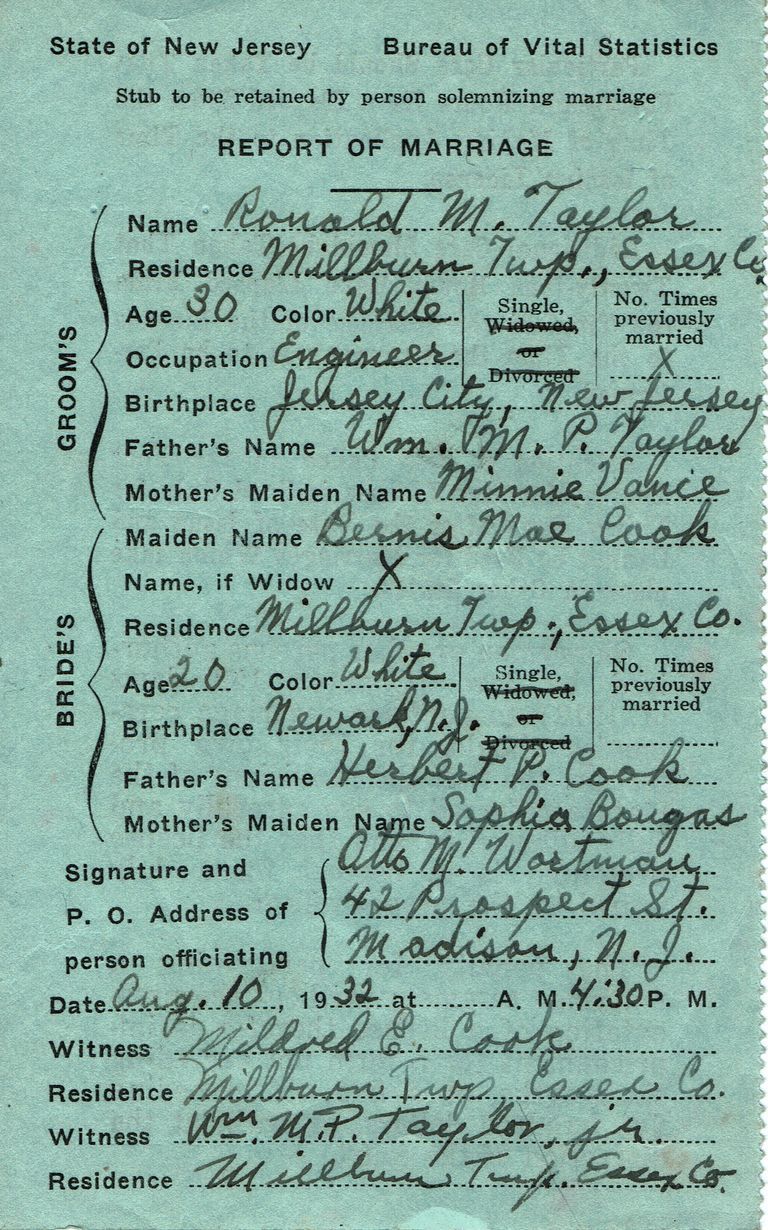 State of New Jersey Bureau of Vital Statistics
Stub to be retained by person solemnizing marriage
REPORT OF MARRIAGE
GROOM'S
Name Ronald M. Taylor
Residence Millburn Twp., Essex Co.
Age 30 Color White Single, Widowed, or Divorced No. Times previously married X
Occupation Engineer
Birthplace Jersey City, New Jersey
Father's Name Wm. M. P. Taylor
Mother's Maiden Name Minnie Vance
BRIDE'S
Maiden Name Bernis Mae Cook
Name, if Widow X
Residence Millburn Twp., Essex Co.
Age 20 Color White Single, Widowed, or Divorced No. Times previously married
Birthplace Newark, N.J.
Father's Name Herbert P. Cook
Mother's Maiden Name Sophia Bougas
Signature and Otto M. Wortman
P. O. Address of 42 Prospect St.
person officiating Madison, N. J.
Date Aug. 10, 1932 at A. M. 4:30 P. M.
Witness Mildred E. Cook
Residence Millburn Twp Essex Co.
Witness Wm. M.P. Taylor, jr.
Residence Millburn Twp. Essex Co.